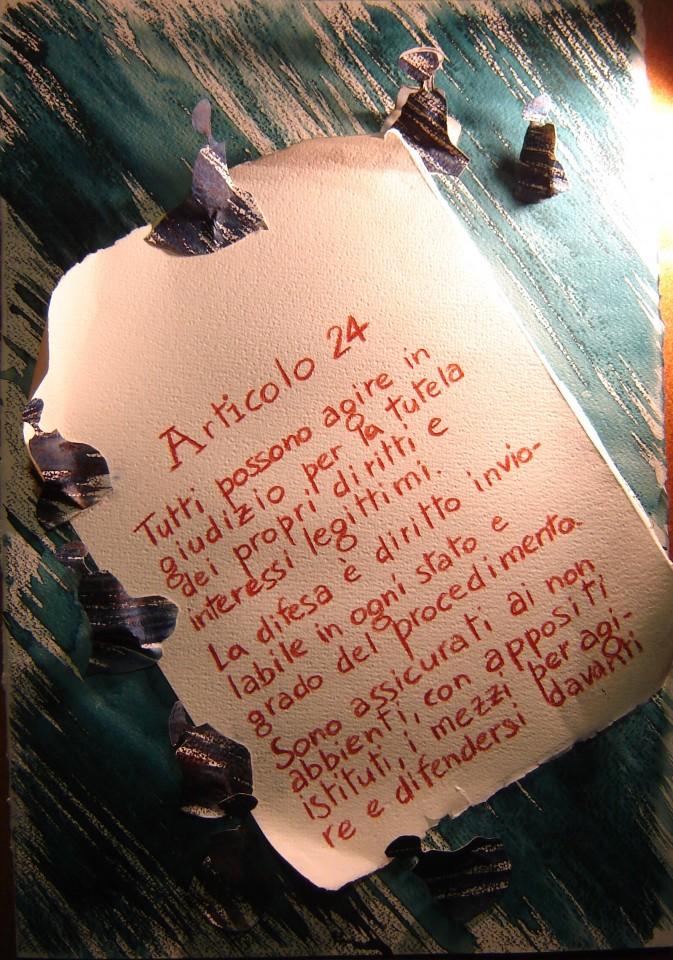 Articolo 24
Tutti possono agire in
giudizio per la tutela
dei propri diritti e
interessi legittimi.
La difesa è diritto invio-
labile in ogni stato e
grado del procedimento.
Sono assicurati ai non
abbienti, con appositi
istituti, i mezzi per agi-
re e difendersi davanti